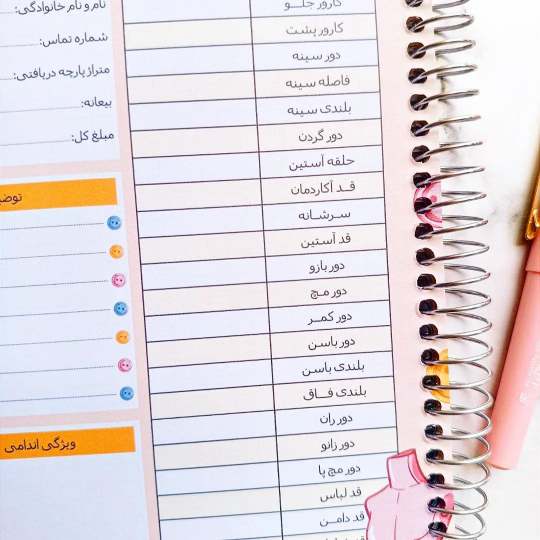 نام و نام خانوادگی:
شماره تماس:
متراژ پارچه دریافتی:
بیعانه:
مبلغ کل:
کارور جلــو
کارور پشت
دور سینه
فاصله سینه
بلندی سینه
دور گردن
حلقه آستین
قــد آکاردمان
سـرشـانه
قد آستین
دور بازو
دور مـچ
دور کمــر
دور باسن
بلندی باسن
بلندی فــاق
دور ران
دور زانو
دور مچ پا
قد لباس
قد دامـن
ویژگی اندامی